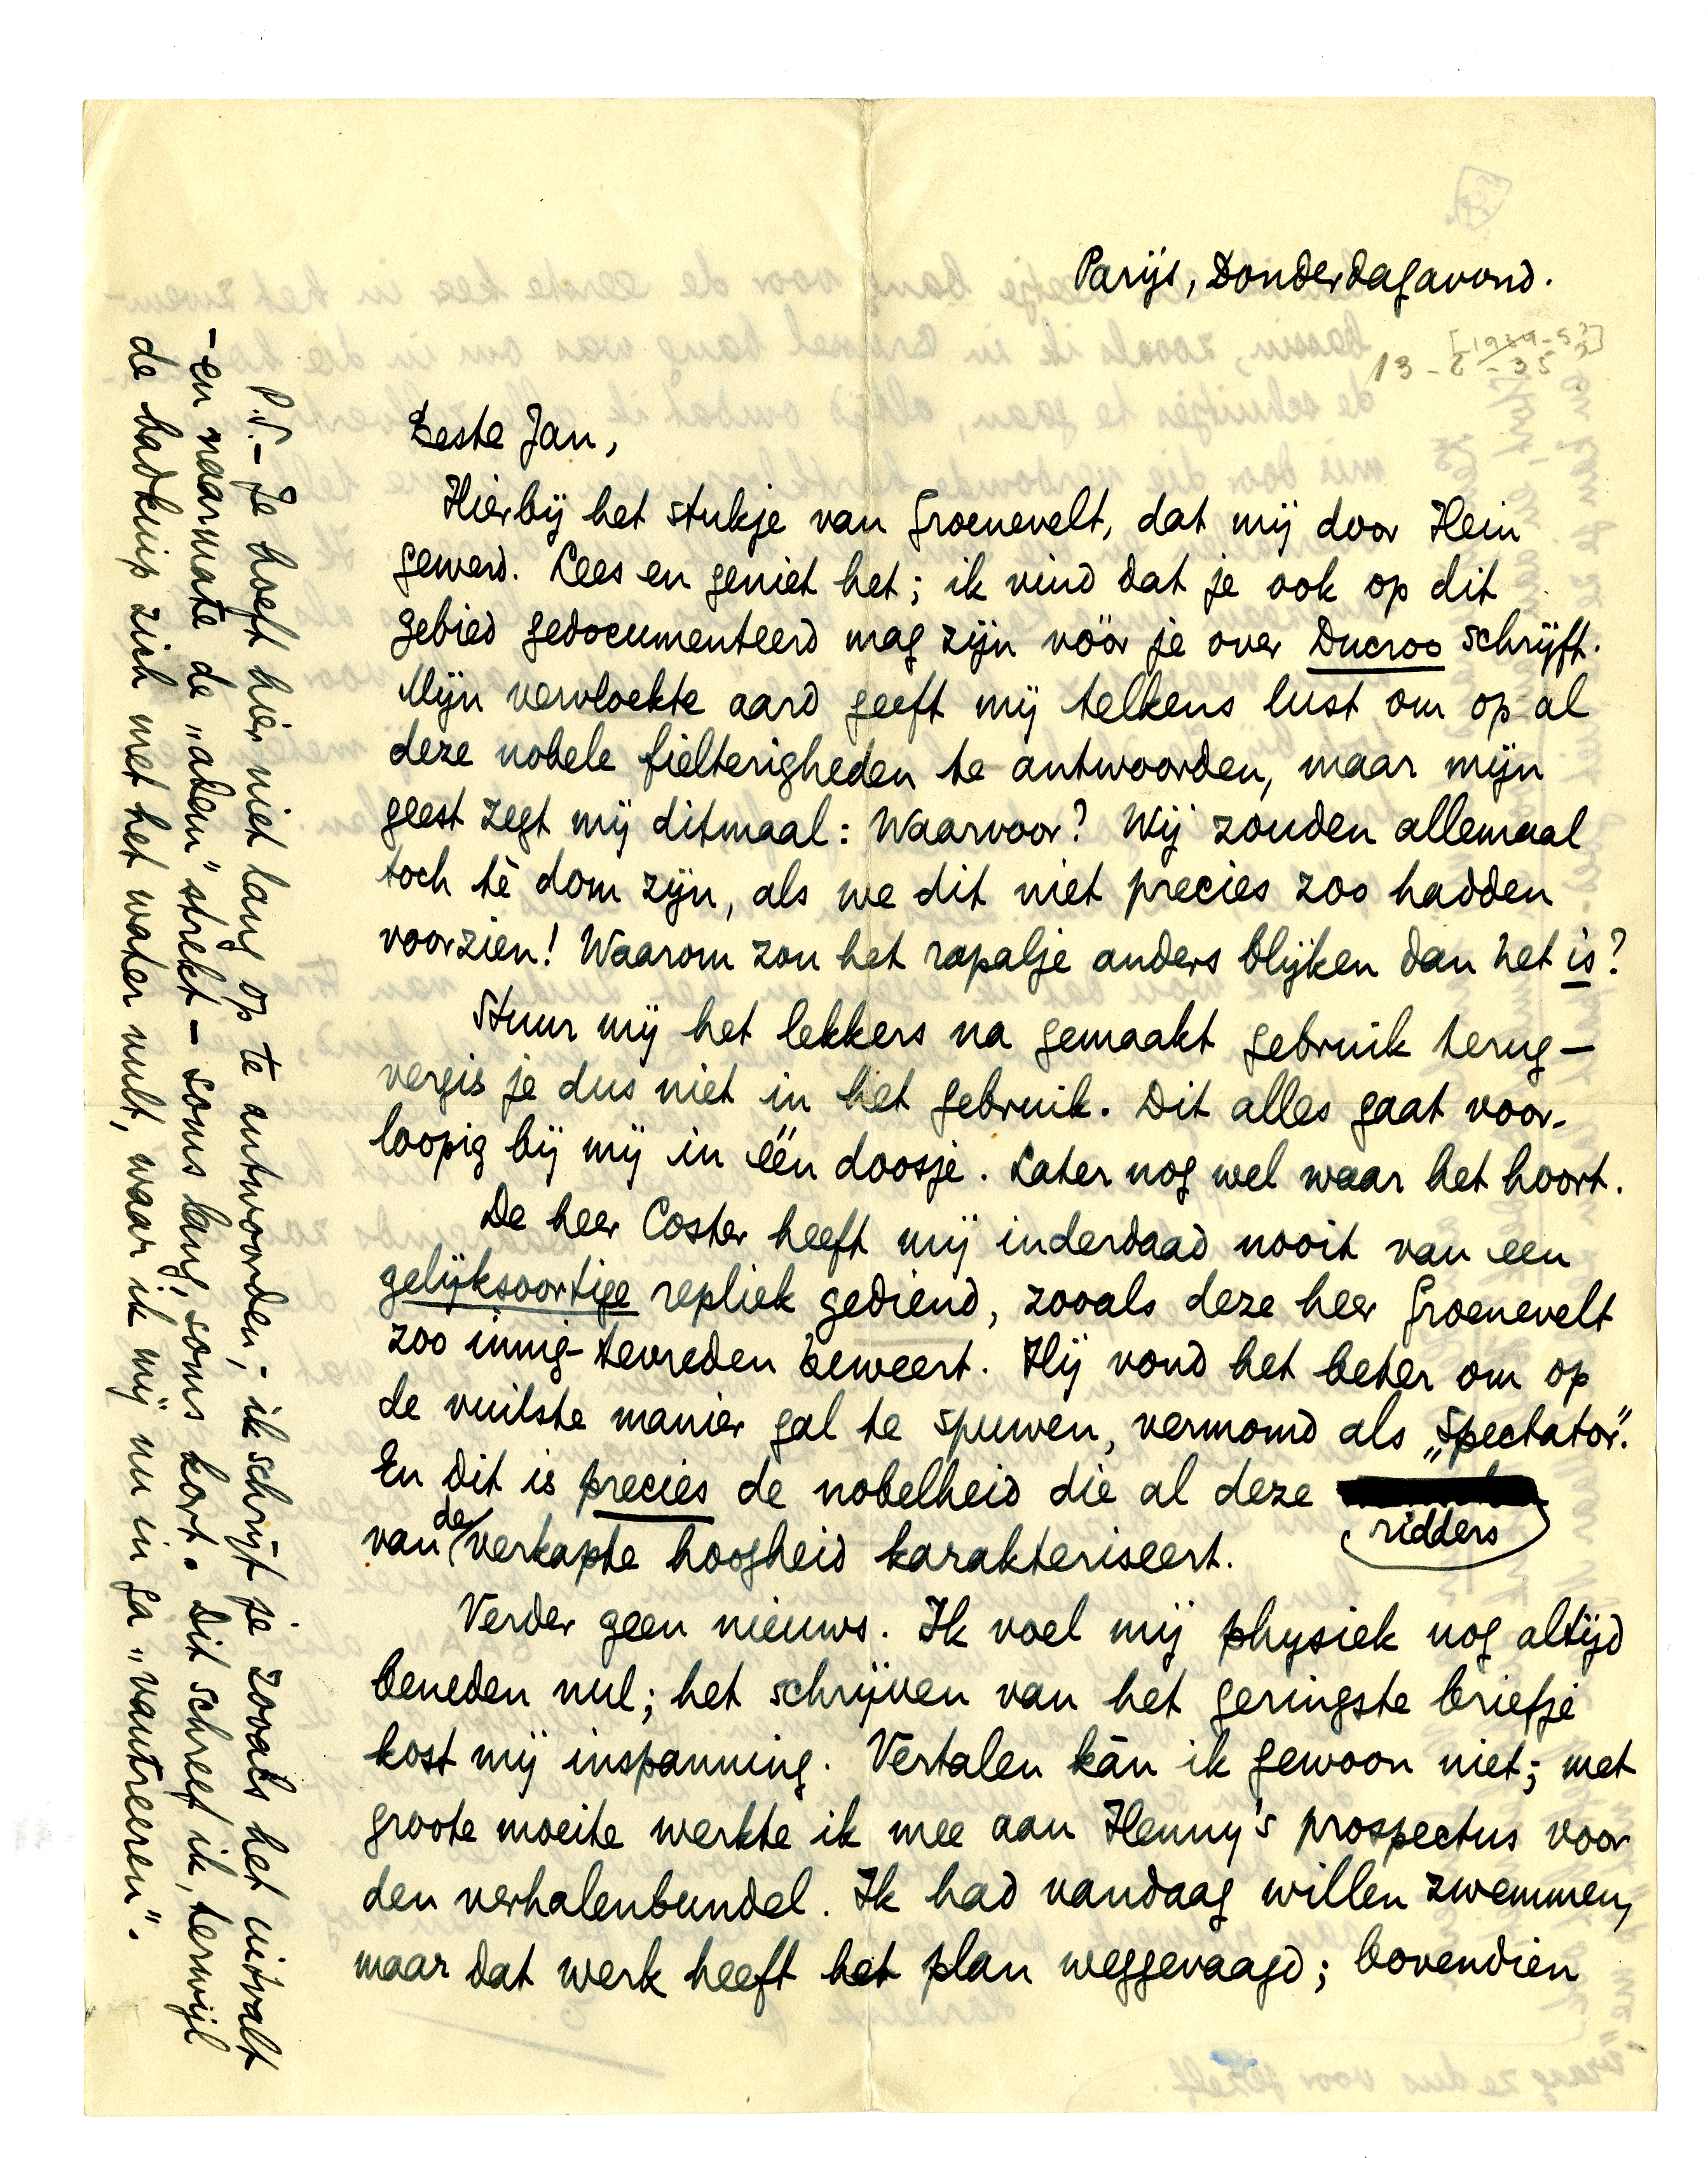 Parijs, Donderdagavond.
[1934-5?]
13-6-35
Beste Jan,
Hierbij het stukje van Groenevelt, dat mij door Hein
gewerd. Lees en geniet het; ik vind dat je ook op dit
gebied gedocumenteerd mag zijn vóór je over Ducroo schrijft.
Mijn vervloekte aard geeft mij telkens lust om op al
deze nobele fielterigheden te antwoorden, maar mijn
geest zegt mij ditmaal: Waarvoor? Wij zouden allemaal
toch tè dom zijn, als we dit niet precies zoo hadden
voorzien! Waarom zou het rapalje anders blijken dan het is?
Stuur mij het lekkers na gemaakt gebruik terug –
vergis je dus niet in het gebruik. Dit alles gaat voor-
loopig bij mij in één doosje. Later nog wel waar het hoort.
De heer Coster heeft mij inderdaad nooit van een
gelijksoortige repliek gediend, zooals deze heer Groenevelt
zoo innig-tevreden beweert. Hij vond het beter om op
de vuilste manier gal te spuwen, vermomd als „Spectator".
En dit is precies de nobelheid die al deze ridders
van de verkapte hoogheid karakteriseert.
Verder geen nieuws. Ik voel mij physiek nog altijd
beneden nul; het schrijven van het geringste briefje
kost mij inspanning. Vertalen kàn ik gewoon niet; met
groote moeite werkte ik mee aan Henny's prospectus voor
den verhalenbundel. Ik had vandaag willen zwemmen,
maar dat werk heeft het plan weggevaagd; bovendien
P.S. – Je hoeft hier niet lang op te antwoorden; ik schrijf je zooals het uitvalt
– en naarmate de „adem" strekt – soms lang, soms kort. Dit schreef ik, terwijl
de badkuip zich met het water vult, waar ik mij nu in ga „vautreeren".